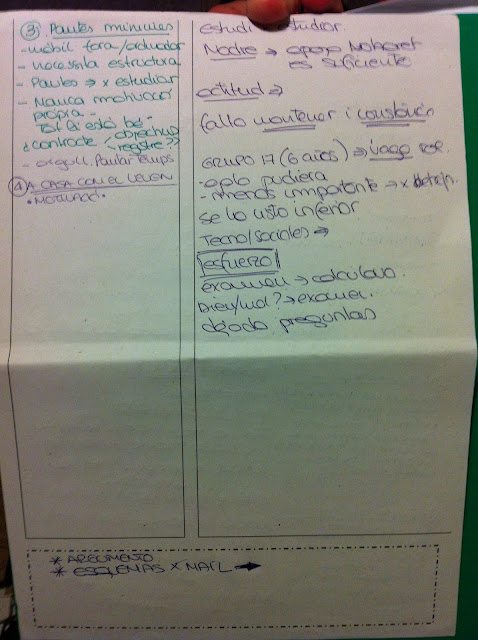 ③ Pautes mínimes
- mòbil fora/ordinador
- necessita estructura
- Pautes → x estudiar
- Manca motivació
pròpia -
Tot li està bé -
contracte < objectius
registre >>
- orgull. Pautar temps
④ A CASA CON EL LEUEN
• MOTIVACIÓ •
estudi estudiar.
Madre → apoyo
es suficiente
actitud →
falla mantener i constància
GRUPO 17 (6 años) → vago
- menos importante → x
se ha visto inferior
Tecno/sociales →
esfuerzo
examen → calculava.
Bien/mal? → examen.
dejado preguntas
* 
* ESQUEMAS X MAIL →